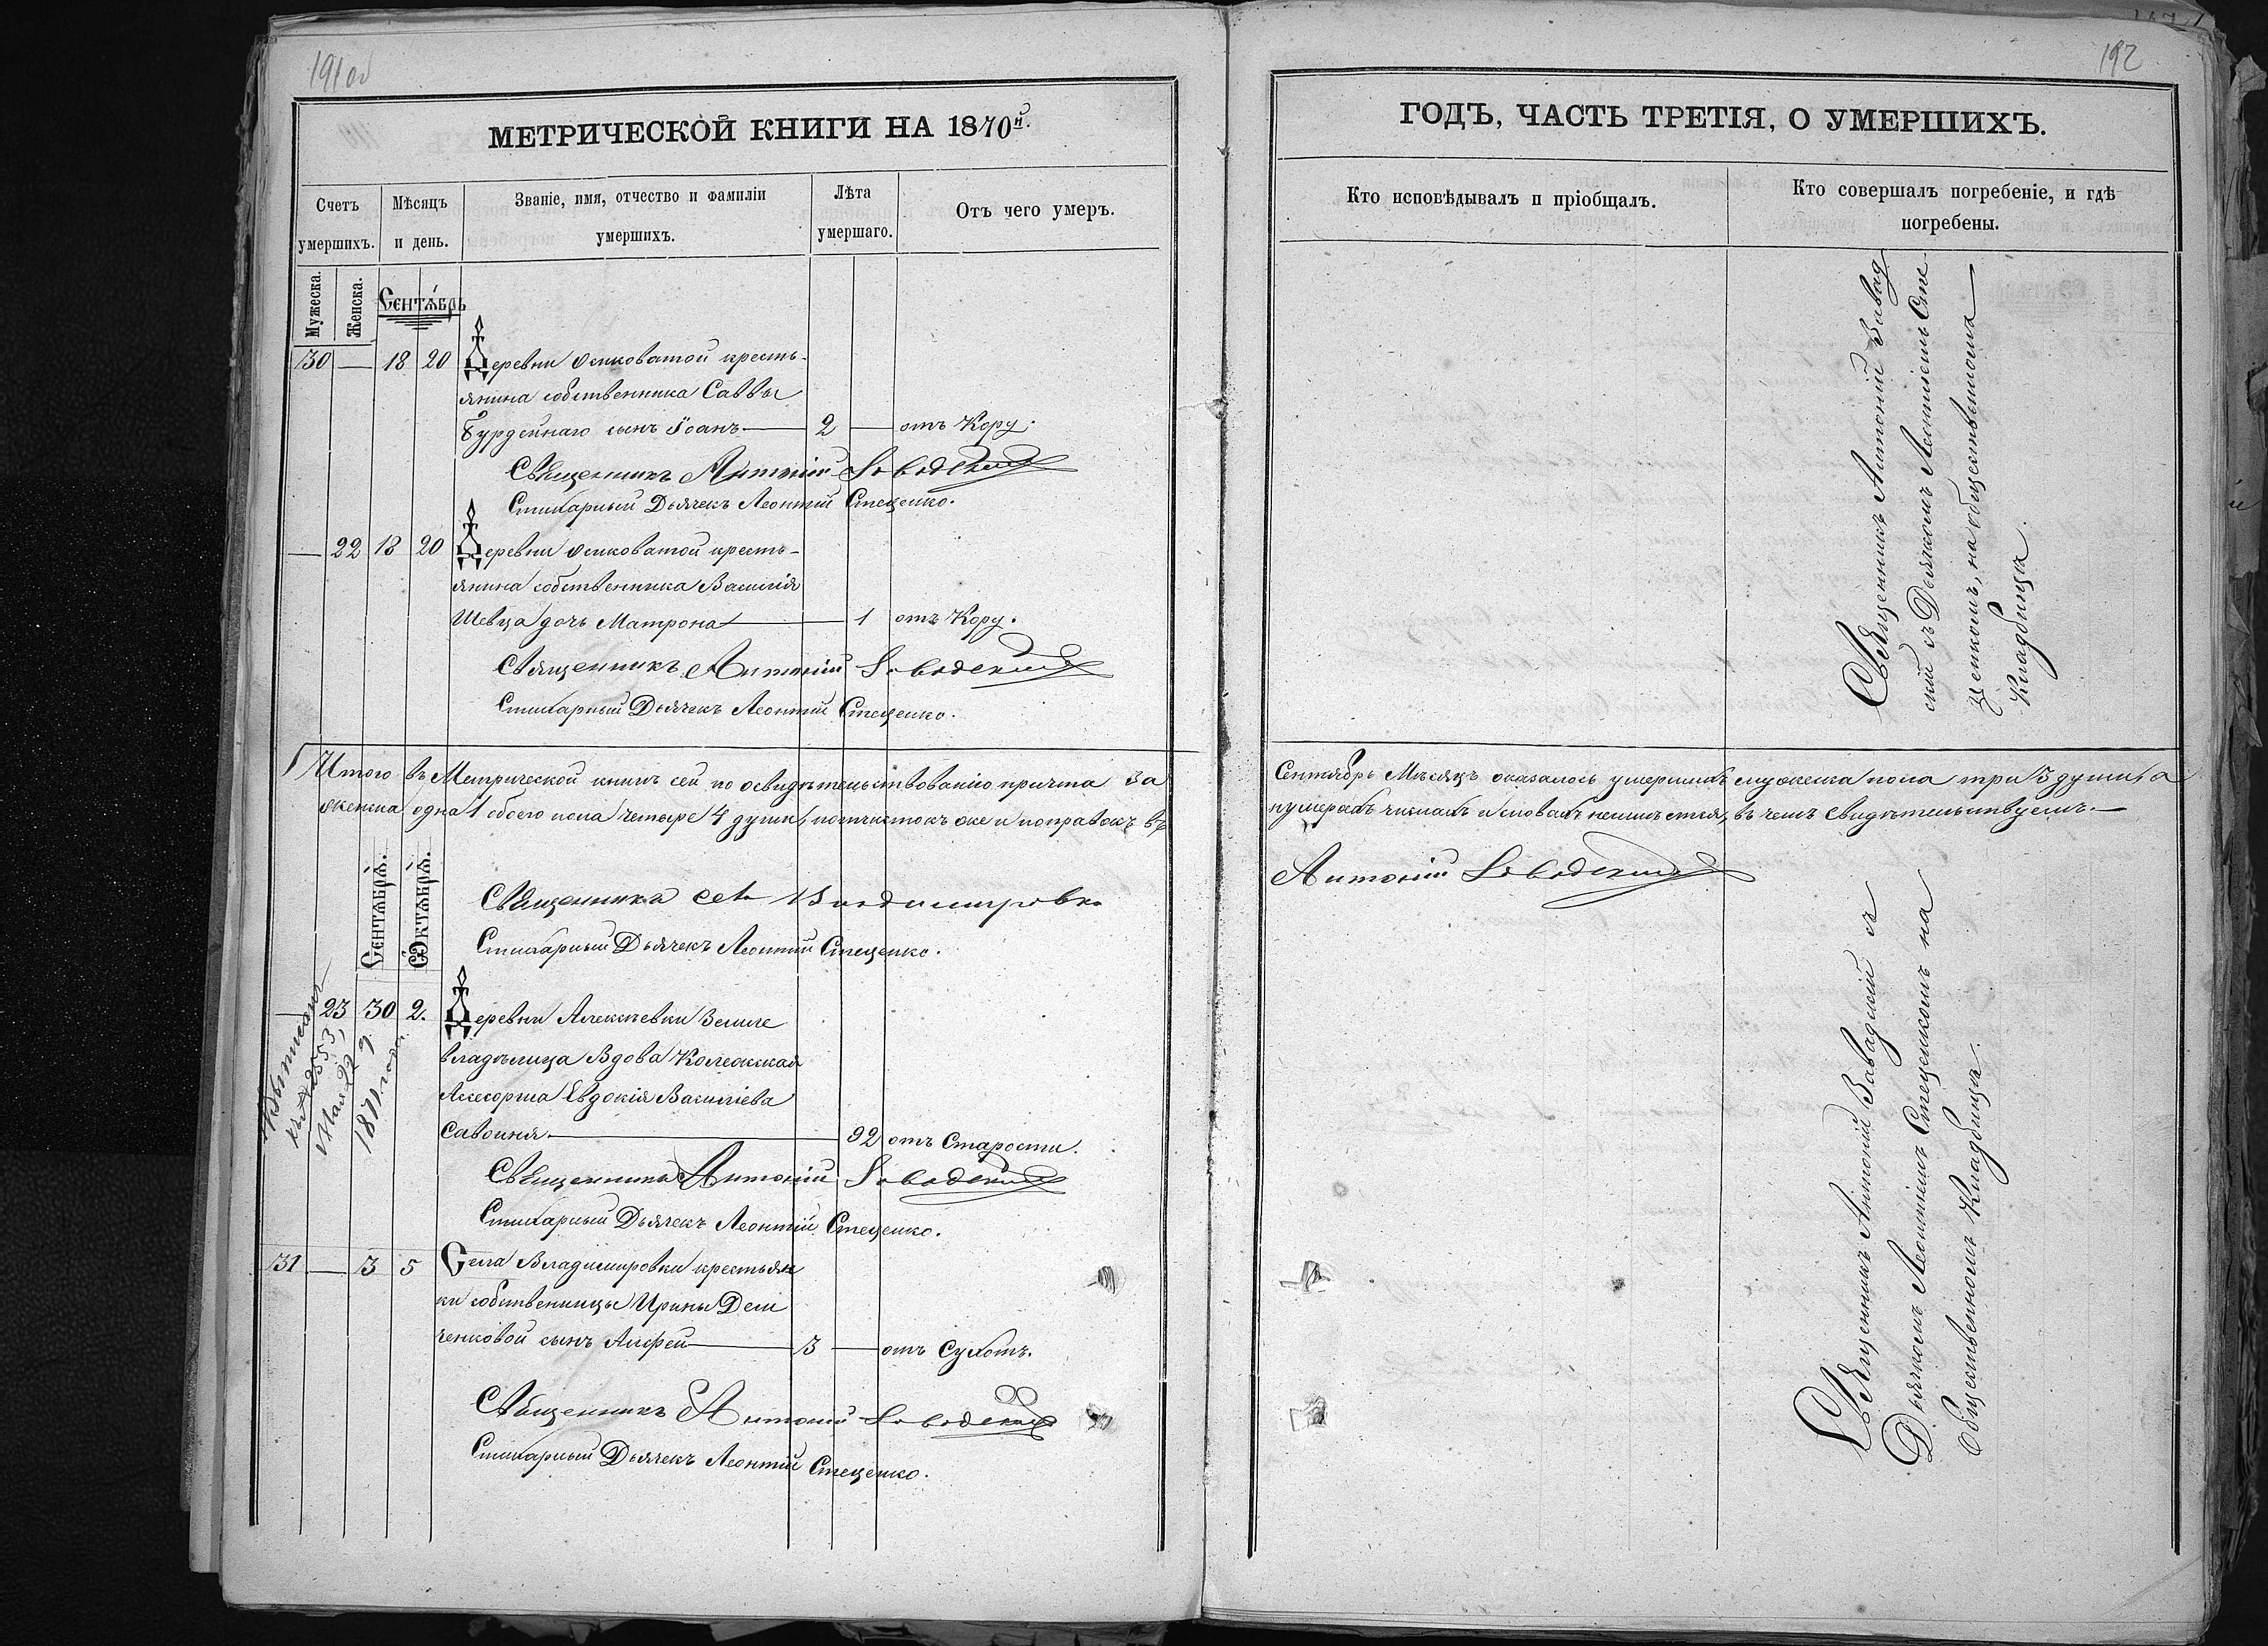 191 об
МЕТРИЧЕСКОЙ КНИГИ НА 1870й.
Счетъ умершихъ.
Мѣсяцъ и день.
Званіе, имя, отчество и фамиліи умершихъ.
Лѣта умершаго.
Отъ чего умеръ.
Мужеска.
Женска.
Сентябрь
30 — 18 20 Деревни Осиковатой кресть-
янина собственника Саввы
Бурдейнаго сынъ Іоанъ — 2 — отъ Кору.
Священникъ Антоній Заводскій
Стихарный Дьячекъ Леонтій Стеценко.
— 22 18 20 Деревни Осиковатой кресть-
янина собственника Василія
Шевца дочь Матрона — 1 отъ Кору.
Священникъ Антоній Заводскій
Стихарный Дьячекъ Леонтій Стеценко.
Итого въ Метрической книгѣ сей по освидѣтельствованію причта за
женска одна 1 обоего пола четыре 4 души, почистокъ же и поправокъ въ
Священникъ села Владимировки
Стихарный Дьячекъ Леонтій Стеценко.
Сентября.
Октября.
— 23 30 2. Деревни Алексѣевки Земле
владѣлица Вдова Колежская
Ассесорша Евдокія Василіева
Савоиня — 92 отъ Старости.
Священникъ Антоній Заводскій
Стихарный Дьячекъ Леонтій Стеценко.
Мая 22 д.
1871 года
31 — 3 5 Села Владимировки крестьян
ки собственницы Ирины Дем
ченковой сынъ Алфей — 3 — отъ Сухотъ.
Священникъ Антоній Заводскій
Стихарный Дьячекъ Леонтій Стеценко.
192
ГОДЪ, ЧАСТЬ ТРЕТІЯ, О УМЕРШИХЪ.
Кто исповѣдывалъ и пріобщалъ.
Кто совершалъ погребеніе, и гдѣ
погребены.
Священникъ Антоній Завад
скій съ Дьячкомъ Леонтіемъ Сте
ценкомъ, на общественномъ
Кладбищѣ.
Сентябрь Мѣсяцъ оказалось умершихъ мужеска пола три 3 души, а
нумерахъ числахъ и словахъ неимѣется, въ чемъ свидѣтельствуемъ. —
Антоній Заводскій
Священникъ Антоній Завадскій съ
Дьячкомъ Леонтіемъ Стеценкомъ на
Общественномъ Кладбищѣ.